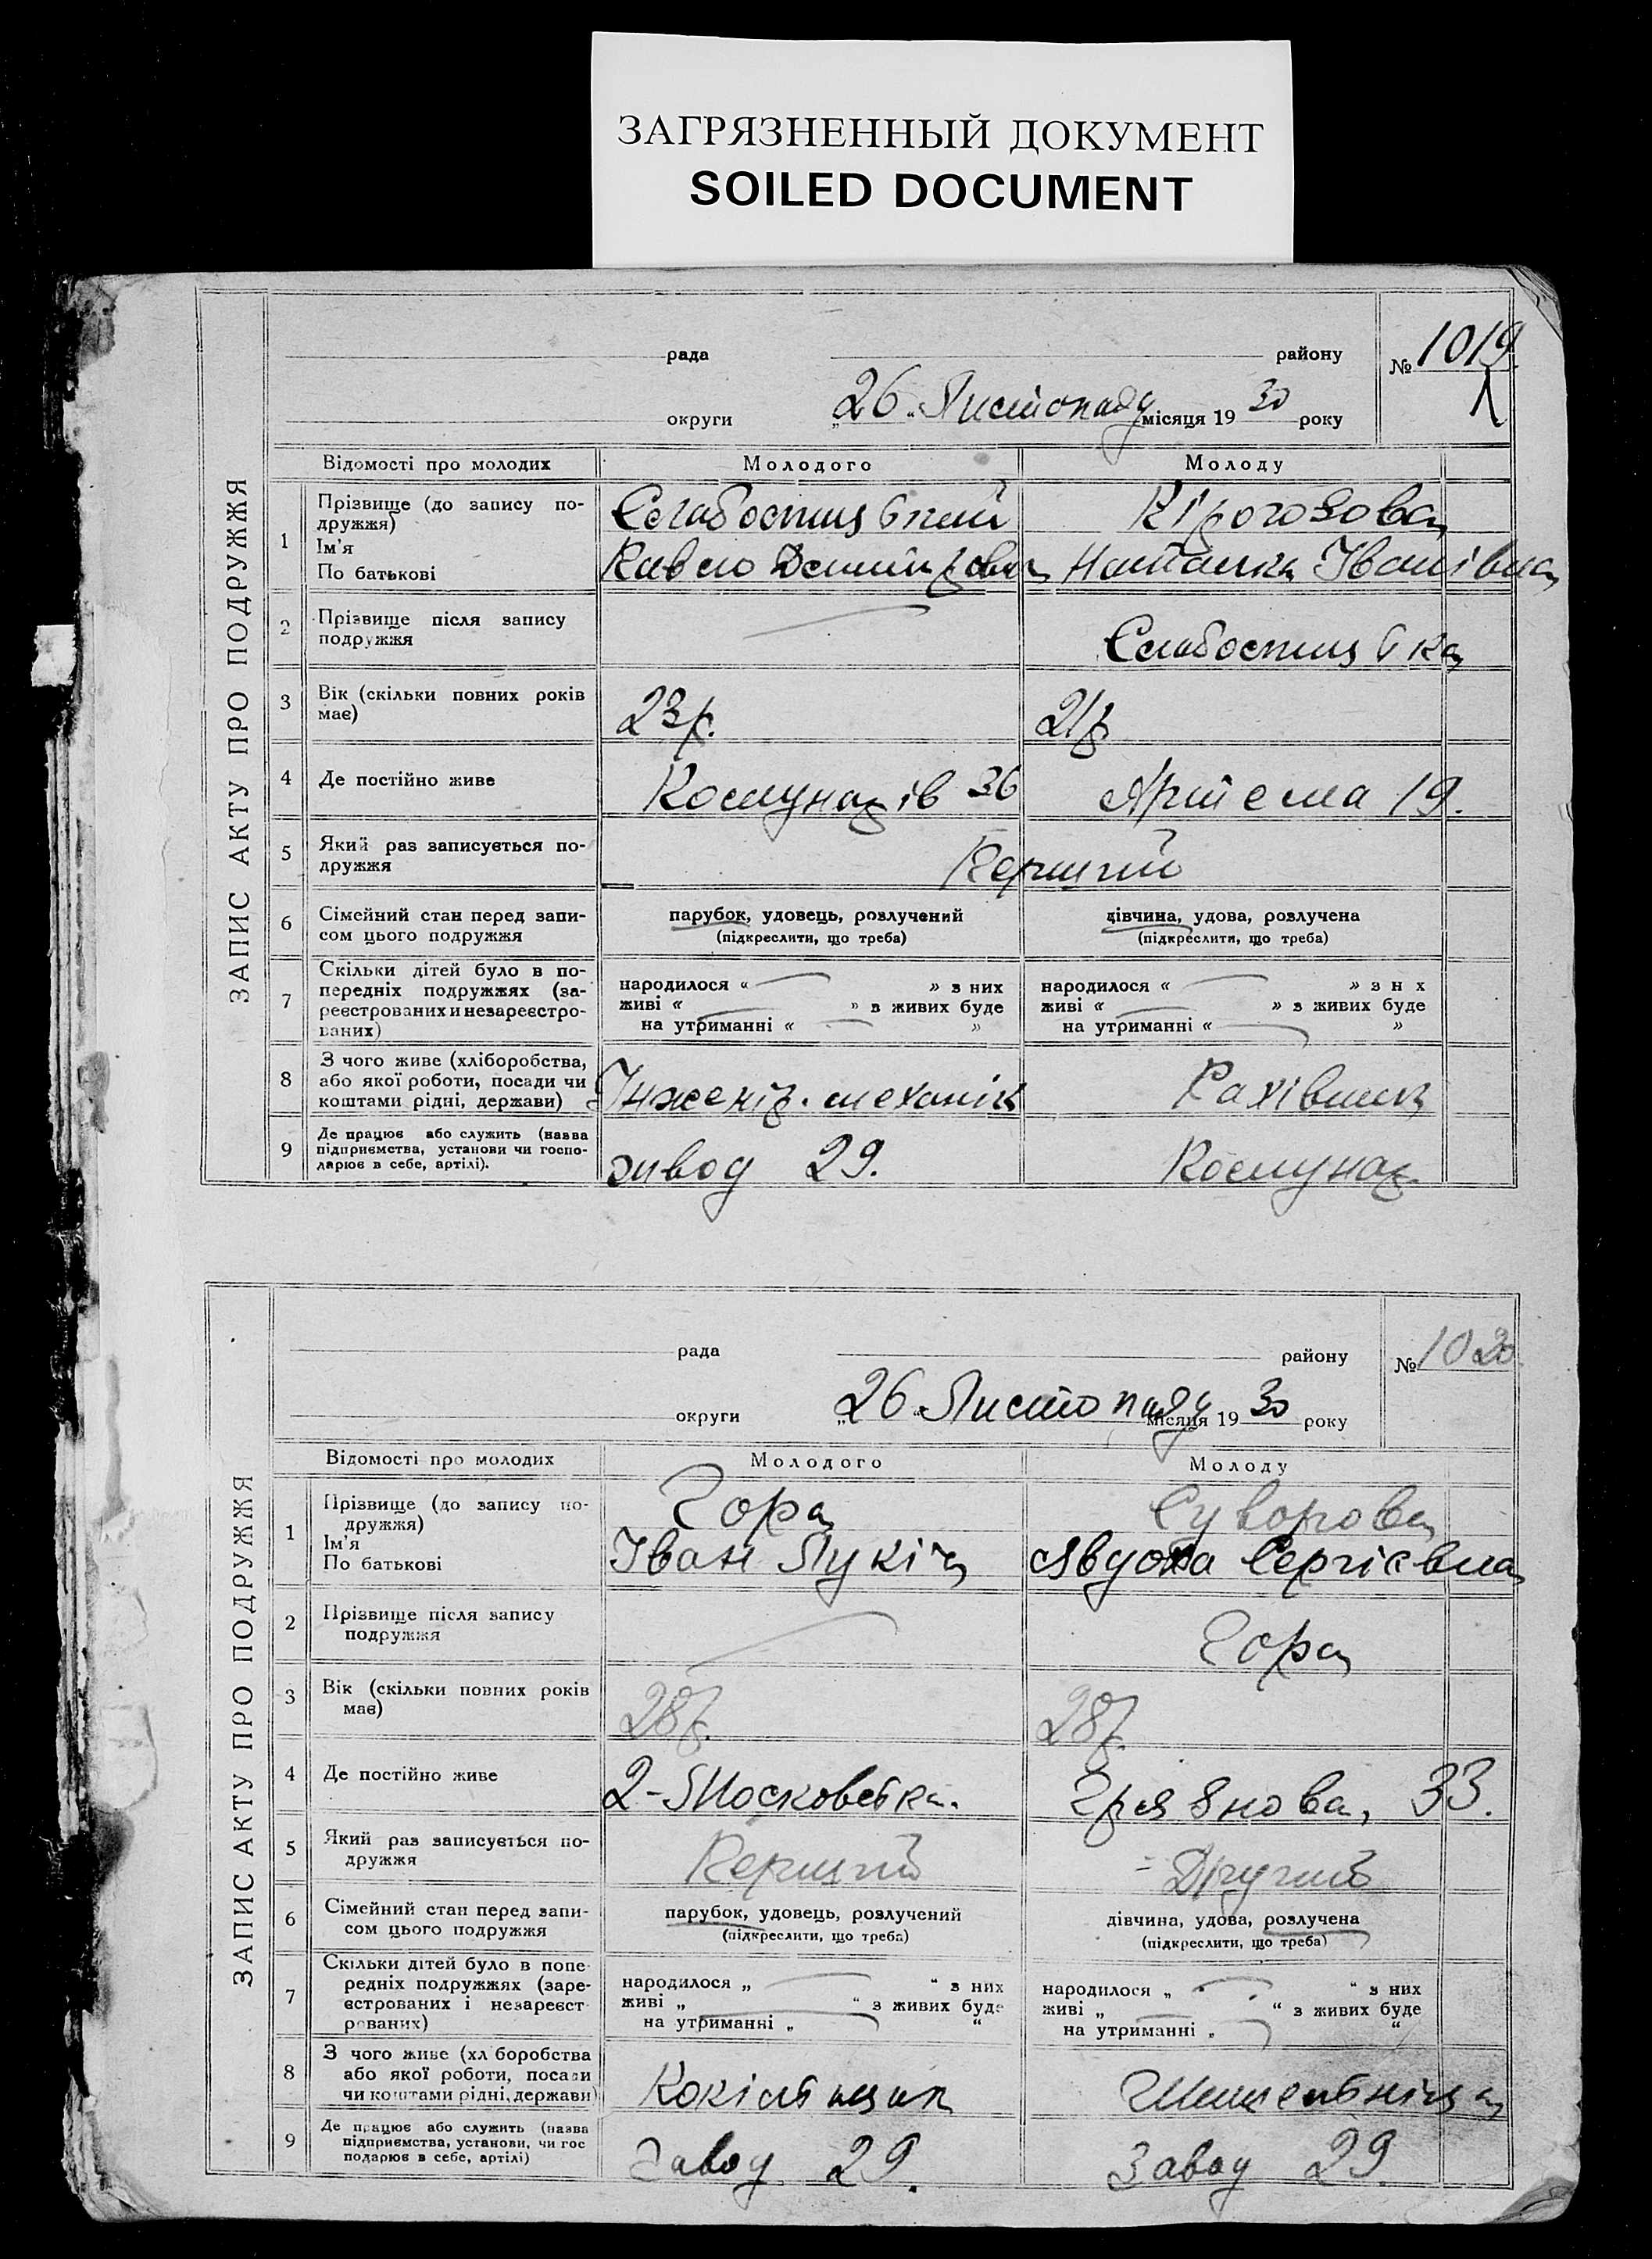 ЗАГРЯЗНЕННЫЙ ДОКУМЕНТ
SOILED DOCUMENT
ЗАПИС АКТУ ПРО ПОДРУЖЖЯ
рада району № 1019.
округи „26“ Листопаду місяця 1930 року
Відомості про молодих Молодого Молоду
1 Прізвище (до запису по-
дружжя)
Ім'я
По батькові
Слабостицький
Павло Дмитрович
Пірогозова
Наталка Іванівна
2 Прізвище після запису
подружжя
Слабостицька
3 Вік (скільки повних років
має)
23р. 21р
4 Де постійно живе Комунарів 36 Артема 19.
5 Який раз записується по-
дружжя
Перший
6 Сімейний стан перед запи-
сом цього подружжя
парубок, удовець, розлучений
(підкреслити, що треба)
дівчина, удова, розлучена
(підкреслити, що треба)
7 Скільки дітей було в по-
передніх подружжях (за-
реєстрованих и незареєстро-
ваних)
народилося « » з них
живі « » з живих буде
на утриманні « »
народилося « » з н х
живі « » з живих буде
на утриманні « »
8 З чого живе (хліборобства,
або якої роботи, посади чи
коштами рідні, держави)
Інженір. механік Рахівник
9 Де працює або служить (назва
підприємства, установи чи госпо-
дарює в себе, артілі).
завод 29. Комунар.
ЗАПИС АКТУ ПРО ПОДРУЖЖЯ
рада району № 1020.
округи „26“ Листопаду місяця 1930 року
Відомості про молодих Молодого Молоду
1 Прізвище (до запису по-
дружжя)
Ім'я
По батькові
Гора
Іван Лукіч
Суворова
Явдоха Сергієвна
2 Прізвище після запису
подружжя
Гора
3 Вік (скільки повних років
має)
28р. 28р.
4 Де постійно живе 2-Московська. Грязнова, 33.
5 Який раз записується по-
дружжя
Перший Другий
6 Сімейний стан перед запи-
сом цього подружжя
парубок, удовець, розлучений
(підкреслити, що треба)
дівчина, удова, розлучена
(підкреслити, що треба)
7 Скільки дітей було в попе-
редніх подружжях (заре-
єстрованих і незареєст-
рованих)
народилося „ “ з них
живі „ “ з живих буде
на утриманні „ “
народилося „ “ з них
живі „ “ з живих буде
на утриманні „ “
8 З чого живе (хл боробства
або якої роботи, посади
чи коштами рідні, держави)
9 Де працює або служить (назва
підприємства, установи, чи гос
подарює в себе, артілі)
Завод 29. Завод 29